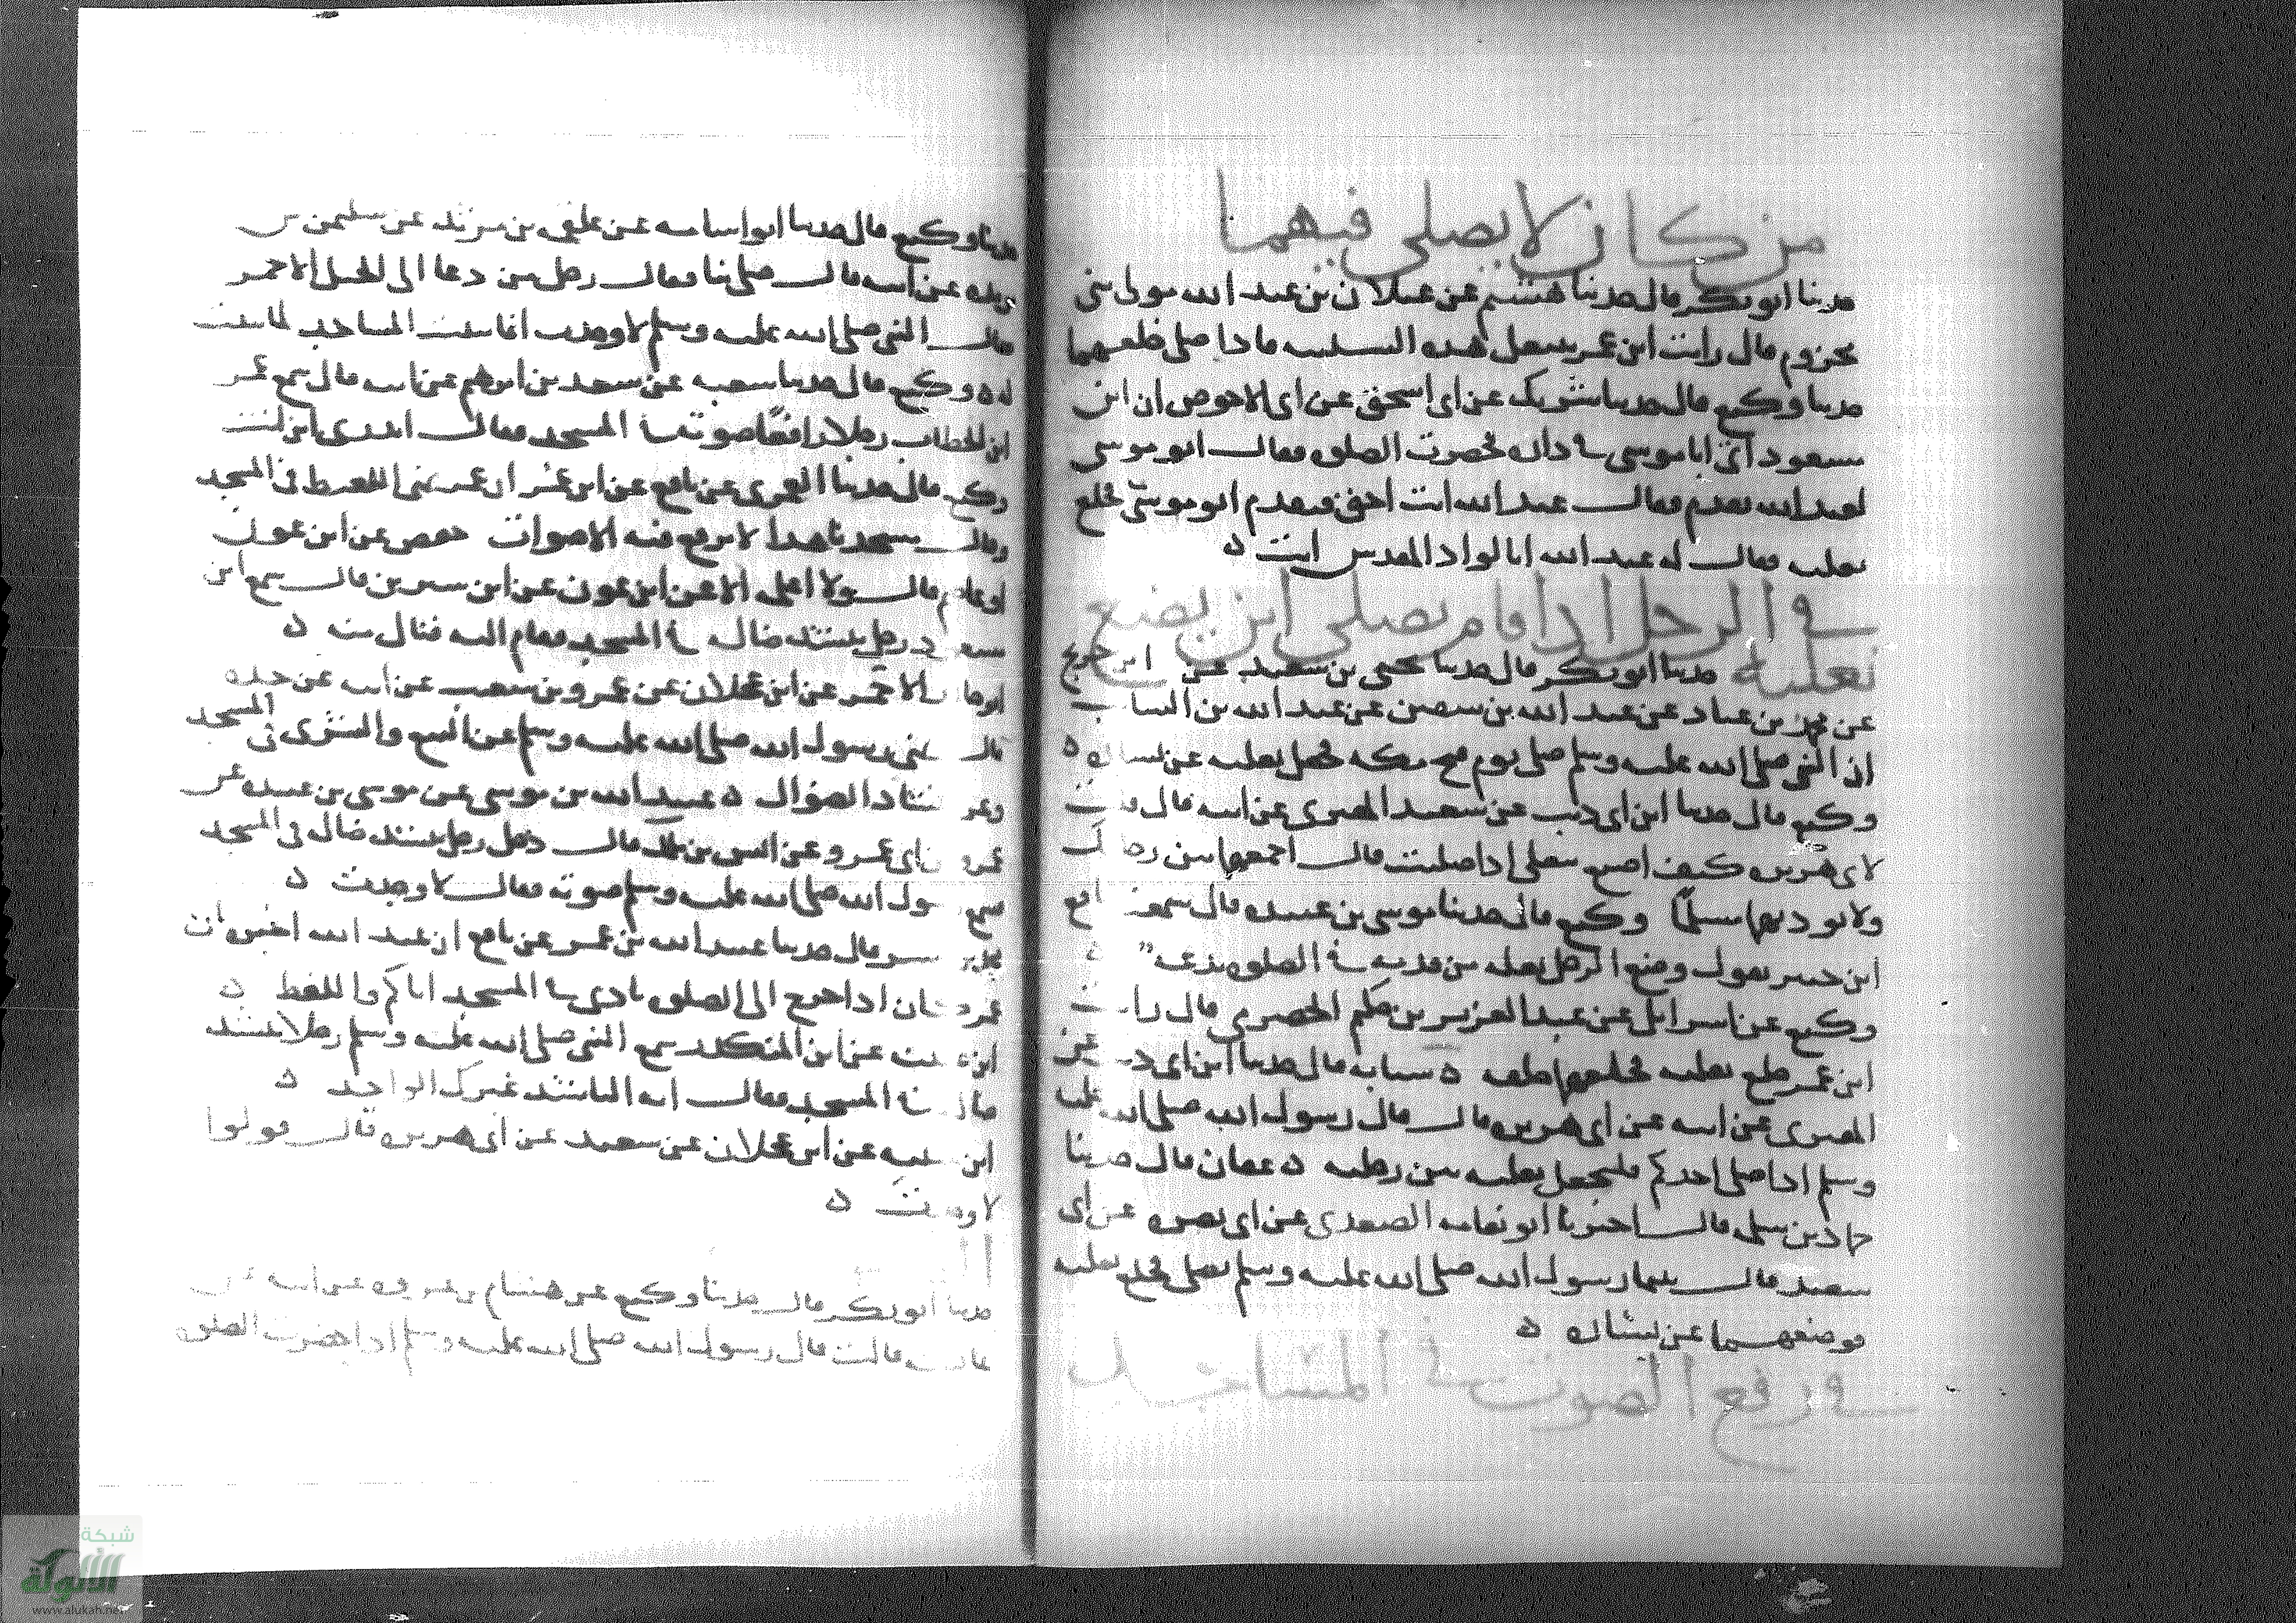 من كان لا يصلي فيهما
حدثنا ابو بكر قال حدثنا هشيم عن عيلان بن عبد الله مولى بني
مخزوم قال رايت ابن عمر هذه ماذا صلى خلعهما
حدثنا وكيع قال حدثنا شريك عن ابي اسحق عن ابي الاحوص ان ابن
مسعود اتى ابا موسى في داره فحضرت الصلوه فقال ابو موسى
لعبد الله تقدم فقال عبد الله انت احق فتقدم ابو موسى فخلع
نعليه فقال له عبد الله ابالواد المقدس انت ه
في الرجل اذا قام يصلي اين يضع
نعليه حدثنا ابو بكر قال حدثنا يحيى بن سعيد عن ابن جريج
عن محمد بن عباد عن عبد الله بن سفين عن عبد الله بن السايب
ان النبي صلى الله عليه وسلم صلى يوم فتح مكه فجعل نعليه عن يساره ه
وكيع قال حدثنا ابن ابي ذيب عن سعيد المقبري عن ابيه قال قلت
لابي هريره كيف اصنع بنعلي اذا صليت قال اجعلهما بين رجليك
ولا توذ بهما مسلما وكيع قال حدثنا موسى بن عبيده قال سمعت نافع
ابن جبير يقول وضع الرجل نعله من قدميه في الصلوه بدعه
وكيع عن اسرائيل عن عبد العزيز بن حكيم الحضرمي قال رايت
ابن عمر خلع نعليه فجعلهما خلفه ه شبابه قال حدثنا ابن ابي ذيب عن
المقبري عن ابيه عن ابي هريره قال قال رسول الله صلى الله عليه
وسلم اذا صلى احدكم فليجعل نعليه بين رجليه ه عفان قال حدثنا
حماد بن سلمه قال اخبرنا ابو نعامه السعدي عن ابي نضره عن ابي
سعيد قال بينما رسول الله صلى الله عليه وسلم يصلي فخلع نعليه
فوضعهما عن يساره ه
في رفع الصوت في المساجد
حدثنا وكيع قال حدثنا ابو اسامه عن علقمه بن مرثد عن سليمن بن
بريده عن ابيه قال صلينا فقال رجل من دعا الى الجمل الاحمر
فقال النبي صلى الله عليه وسلم لا وجدت انما بنيت المساجد لما بنيت
له ه وكيع قال حدثنا شعبه عن سعد بن ابرهيم عن ابيه قال سمع عمر
ابن الخطاب رجلا رافعا صوته في المسجد فقال اتدري اين انت
وكيع قال حدثنا العمري عن نافع عن ابن عمر ان عمر نهى اللغط في المسجد
وقال مسجدنا هذا لا يرفع فيه الاصوات حفص عن ابن عون
قال ولا اعلمه الا عن ابن عون عن ابن سيرين قال سمع ابن
مسعود رجل ينشد ضاله في المسجد فقام اليه فنال منه ه
ابو خالد الاحمر عن ابن عجلان عن عمرو بن شعيب عن ابيه عن جده
قال نهى رسول الله صلى الله عليه وسلم عن البيع والشرى في المسجد
وعن انشاد الضوال ه عبيد الله بن موسى عن موسى بن عبيده عن
عمرو بن ابي عمرو عن انس بن ملك قال دخل رجل ينشد ضاله في المسجد
فسمع رسول الله صلى الله عليه وسلم صوته فقال لا وجدت ه
محمد بن بشر قال حدثنا عبيد الله بن عمر عن نافع ان عبد الله اخبره ان
عمر كان اذا خرج الى الصلوه نادى في المسجد اياكم واللغط ه
ابن عيينه عن ابن المنكدر سمع النبي صلى الله عليه وسلم رجلا ينشد
ضاله في المسجد فقال ايها الناشد غيرك الواجد ه
ابن عيينه عن ابن عجلان عن سعيد عن ابي هريره قال قولوا
لا وجدت ه
حدثنا ابو بكر قال حدثنا وكيع عن هشام بن عروه عن ابيه عن
قالت قال رسول الله صلى الله عليه وسلم اذا حضرت الصلوه
شبكة
الألوكة
www.alukah.net